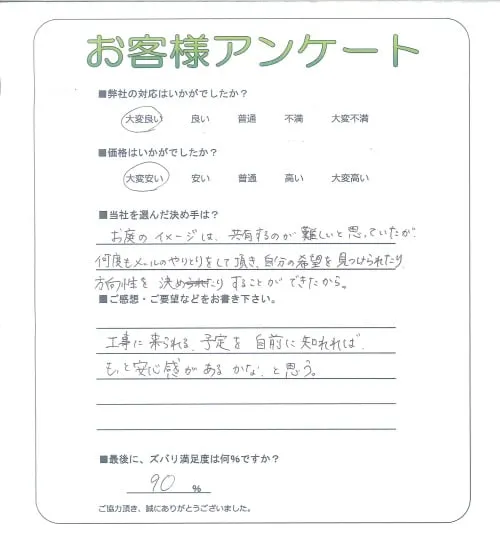 お客様アンケート
■弊社の対応はいかがでしたか？
大変良い 良い 普通 不満 大変不満
■価格はいかがでしたか？
大変安い 安い 普通 高い 大変高い
■当社を選んだ決め手は？
お庭のイメージは、共有するのが難しいと思っていたが、
何度もメールのやりとりをして頂き、自分の希望を見つけられたり
方向性を決められたりすることができたから。
■ご感想・ご要望などをお書き下さい。
工事に来られる、予定を自前に知れれば、
もっと安心感があるかな、と思う。
■最後に、ズバリ満足度は何％ですか？
90 ％
ご協力頂き、誠にありがとうございました。